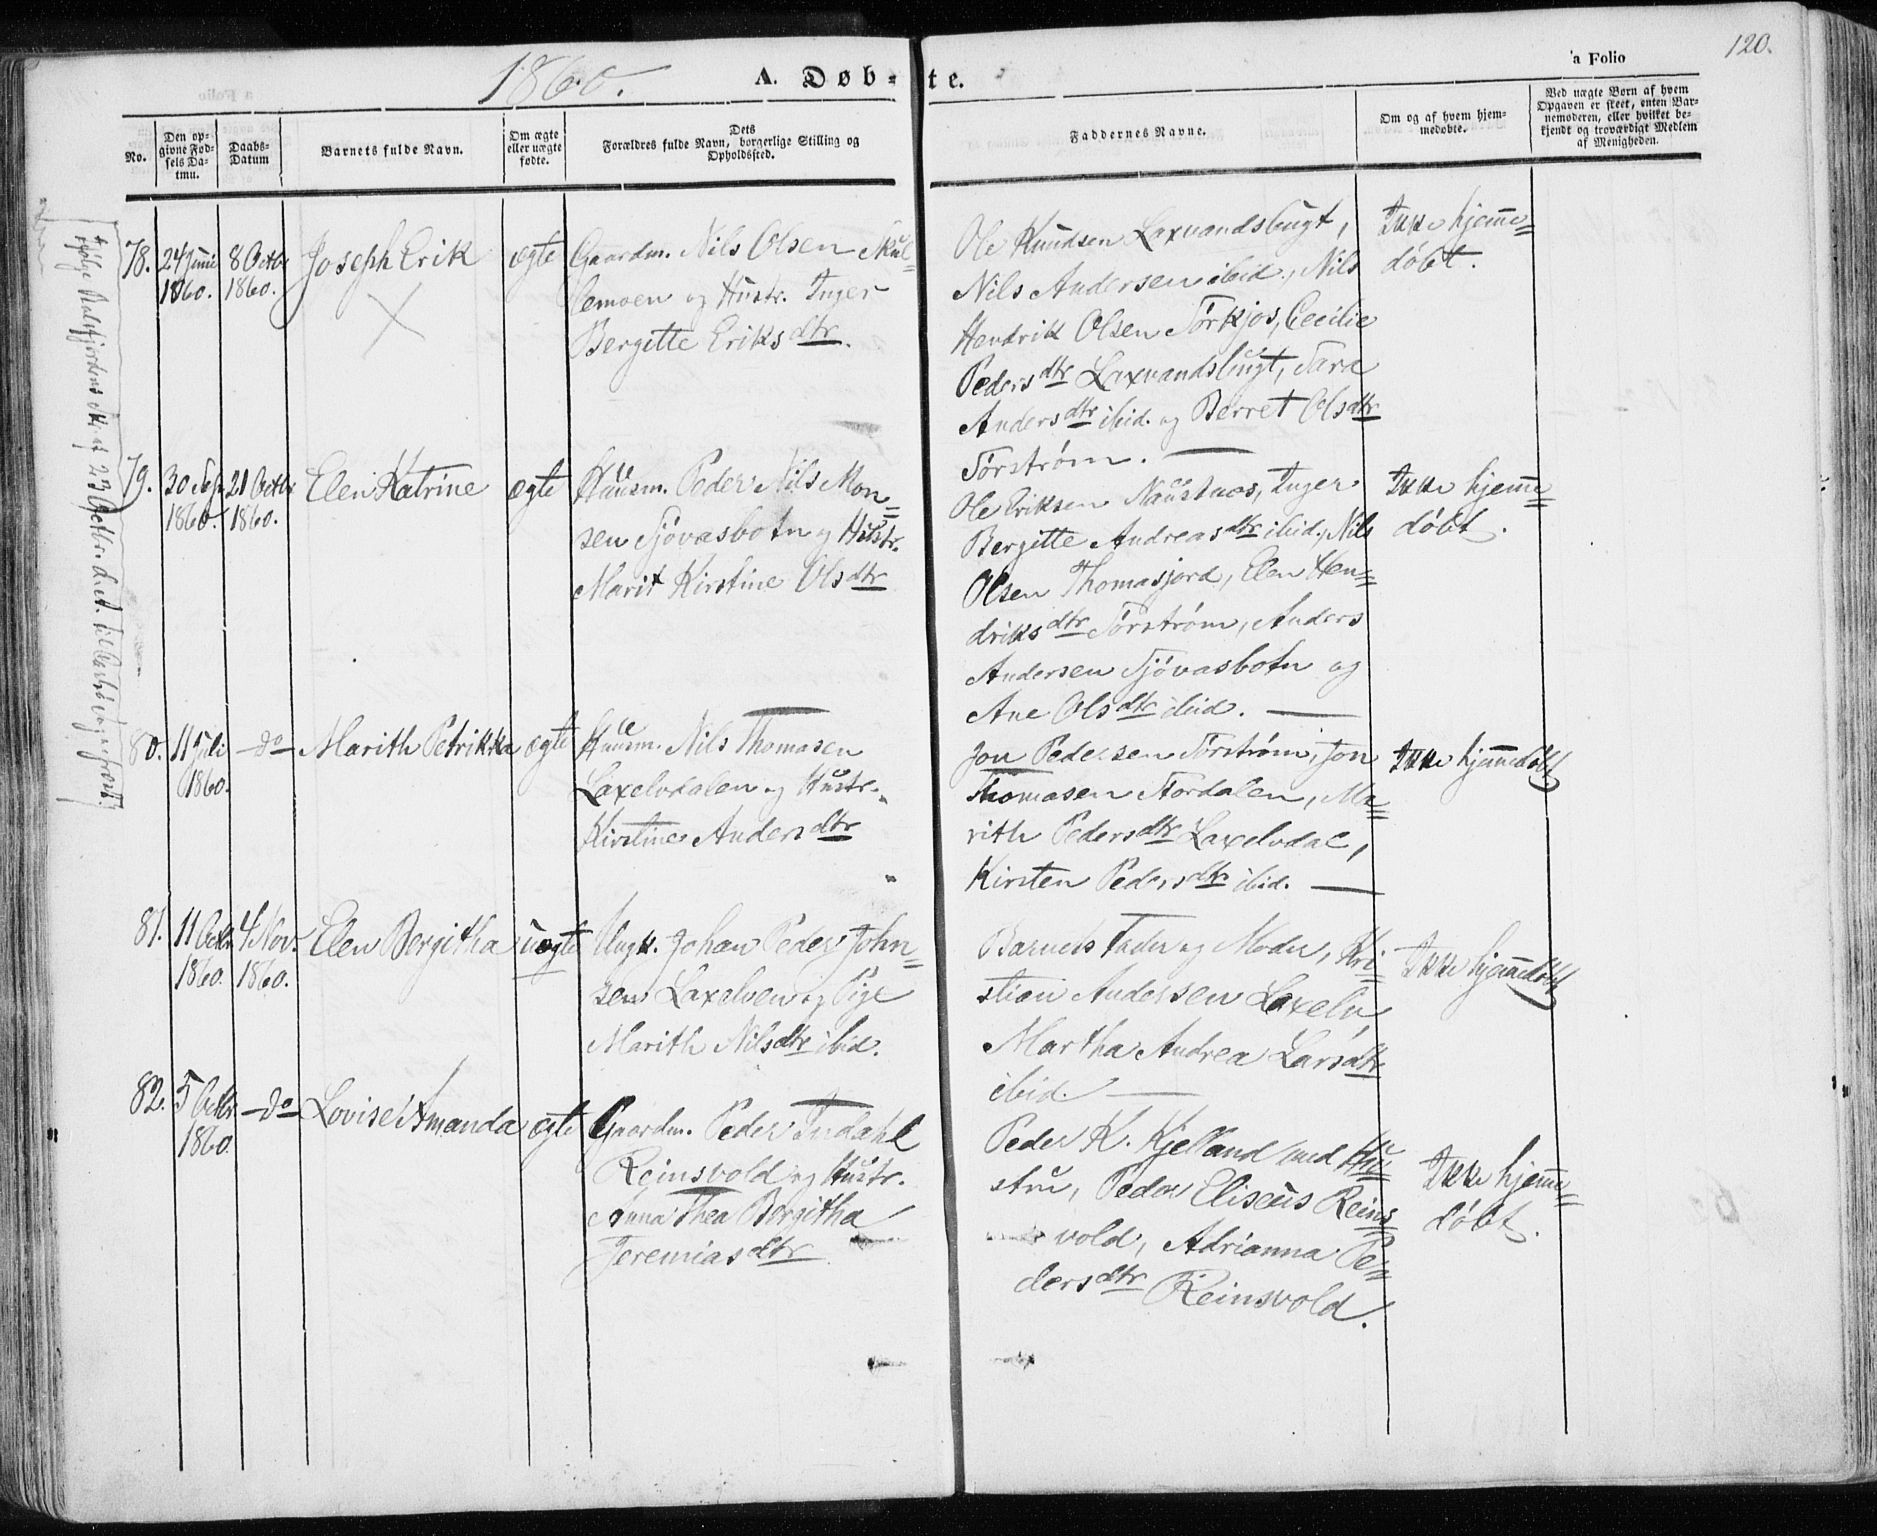 120.
1860.
A. Døb-te.
'a Folio
No.
Den opgivne Fødsels Datmu.
Daabs-Datum
Barnets fulde Navn.
Om ægte eller uægte fødte.
Dets Forældres fulde Navn, borgerlige Stilling og Opholdssted.
Faddernes Navne.
Om og af hvem hjemmedøbte.
Ved uægte Børn af hvem Opgaven er skeet, enten Barnemoderen, eller hvilket bekjendt og troværdigt Medlem af Menigheden.
78.
24 Juni
1860.
8 Octbr
1860.
Joseph Erik
ægte
Gaardm. Nils Olsen Skul=
lemoen og Hustr. Inger
Bergitte Eriksdtr.
Ole Knudsen Laxvandsbugt,
Nils Andersen ibid., Nils
Hendrik Olsen Sørkjos, Cecilie
Pedersdtr Laxvandsbugt, Sara
Andersdtr ibid. og Berret Olsdtr
Sørstrøm.
Ikke hjemme=
døbt.
79.
30 Sep
1860.
21 Octbr
1860.
Elen Katrine
ægte
Huusm. Peder Nils Mon=
sen Sjövasbotn og Hustr.
Marit Kirstine Olsdtr
Ole Eriksen Naustnæs, Inger
Bergitte Andreasdtr ibid., Nils
Olsen Thomasjord, Elen Hen=
driksdtr Sørstrøm, Anders
Andersen Sjövasbotn og
Ane Olsdtr ibid.
Ikke hjemme=
døbt.
80.
11 Juli
1860.
do
Marith Petrikka
ægte
Huusm. Nils Thomasen
Laxelvdalen og Hustr.
Kirstine Andersdtr
Jon Pedersen Sørstrøm, Jon
Thomasen Nordalen, Ma=
rith Pedersdtr Laxelvdal,
Kirsten Pedersdtr ibid.
Ikke hjemmedøbt
81.
11 Octbr.
1860.
4 Nov.
1860.
Elen Bergitha
uægte
Ungk. Johan Peder John=
sen Laxelven og Pige
Marith Nilsdtr ibid.
Barnets Fader og Moder, Kri=
stian Andersen Laxelv,
Martha Andrea Larsdtr
ibid.
Ikke hjemmedøbt
82.
5 Octbr.
1860
do
Lovise Amanda
ægte
Gaardm. Peder Indahl
Reinsvold og Hustr.
Anna Thea Bergitha
Jeremiasdtr
Peder K. Kjelland med Hu=
stru, Peder Eliseus Reins=
vold, Adrianna Pe=
dersdtr Reinsvold.
Ikke hjemme=
døbt.